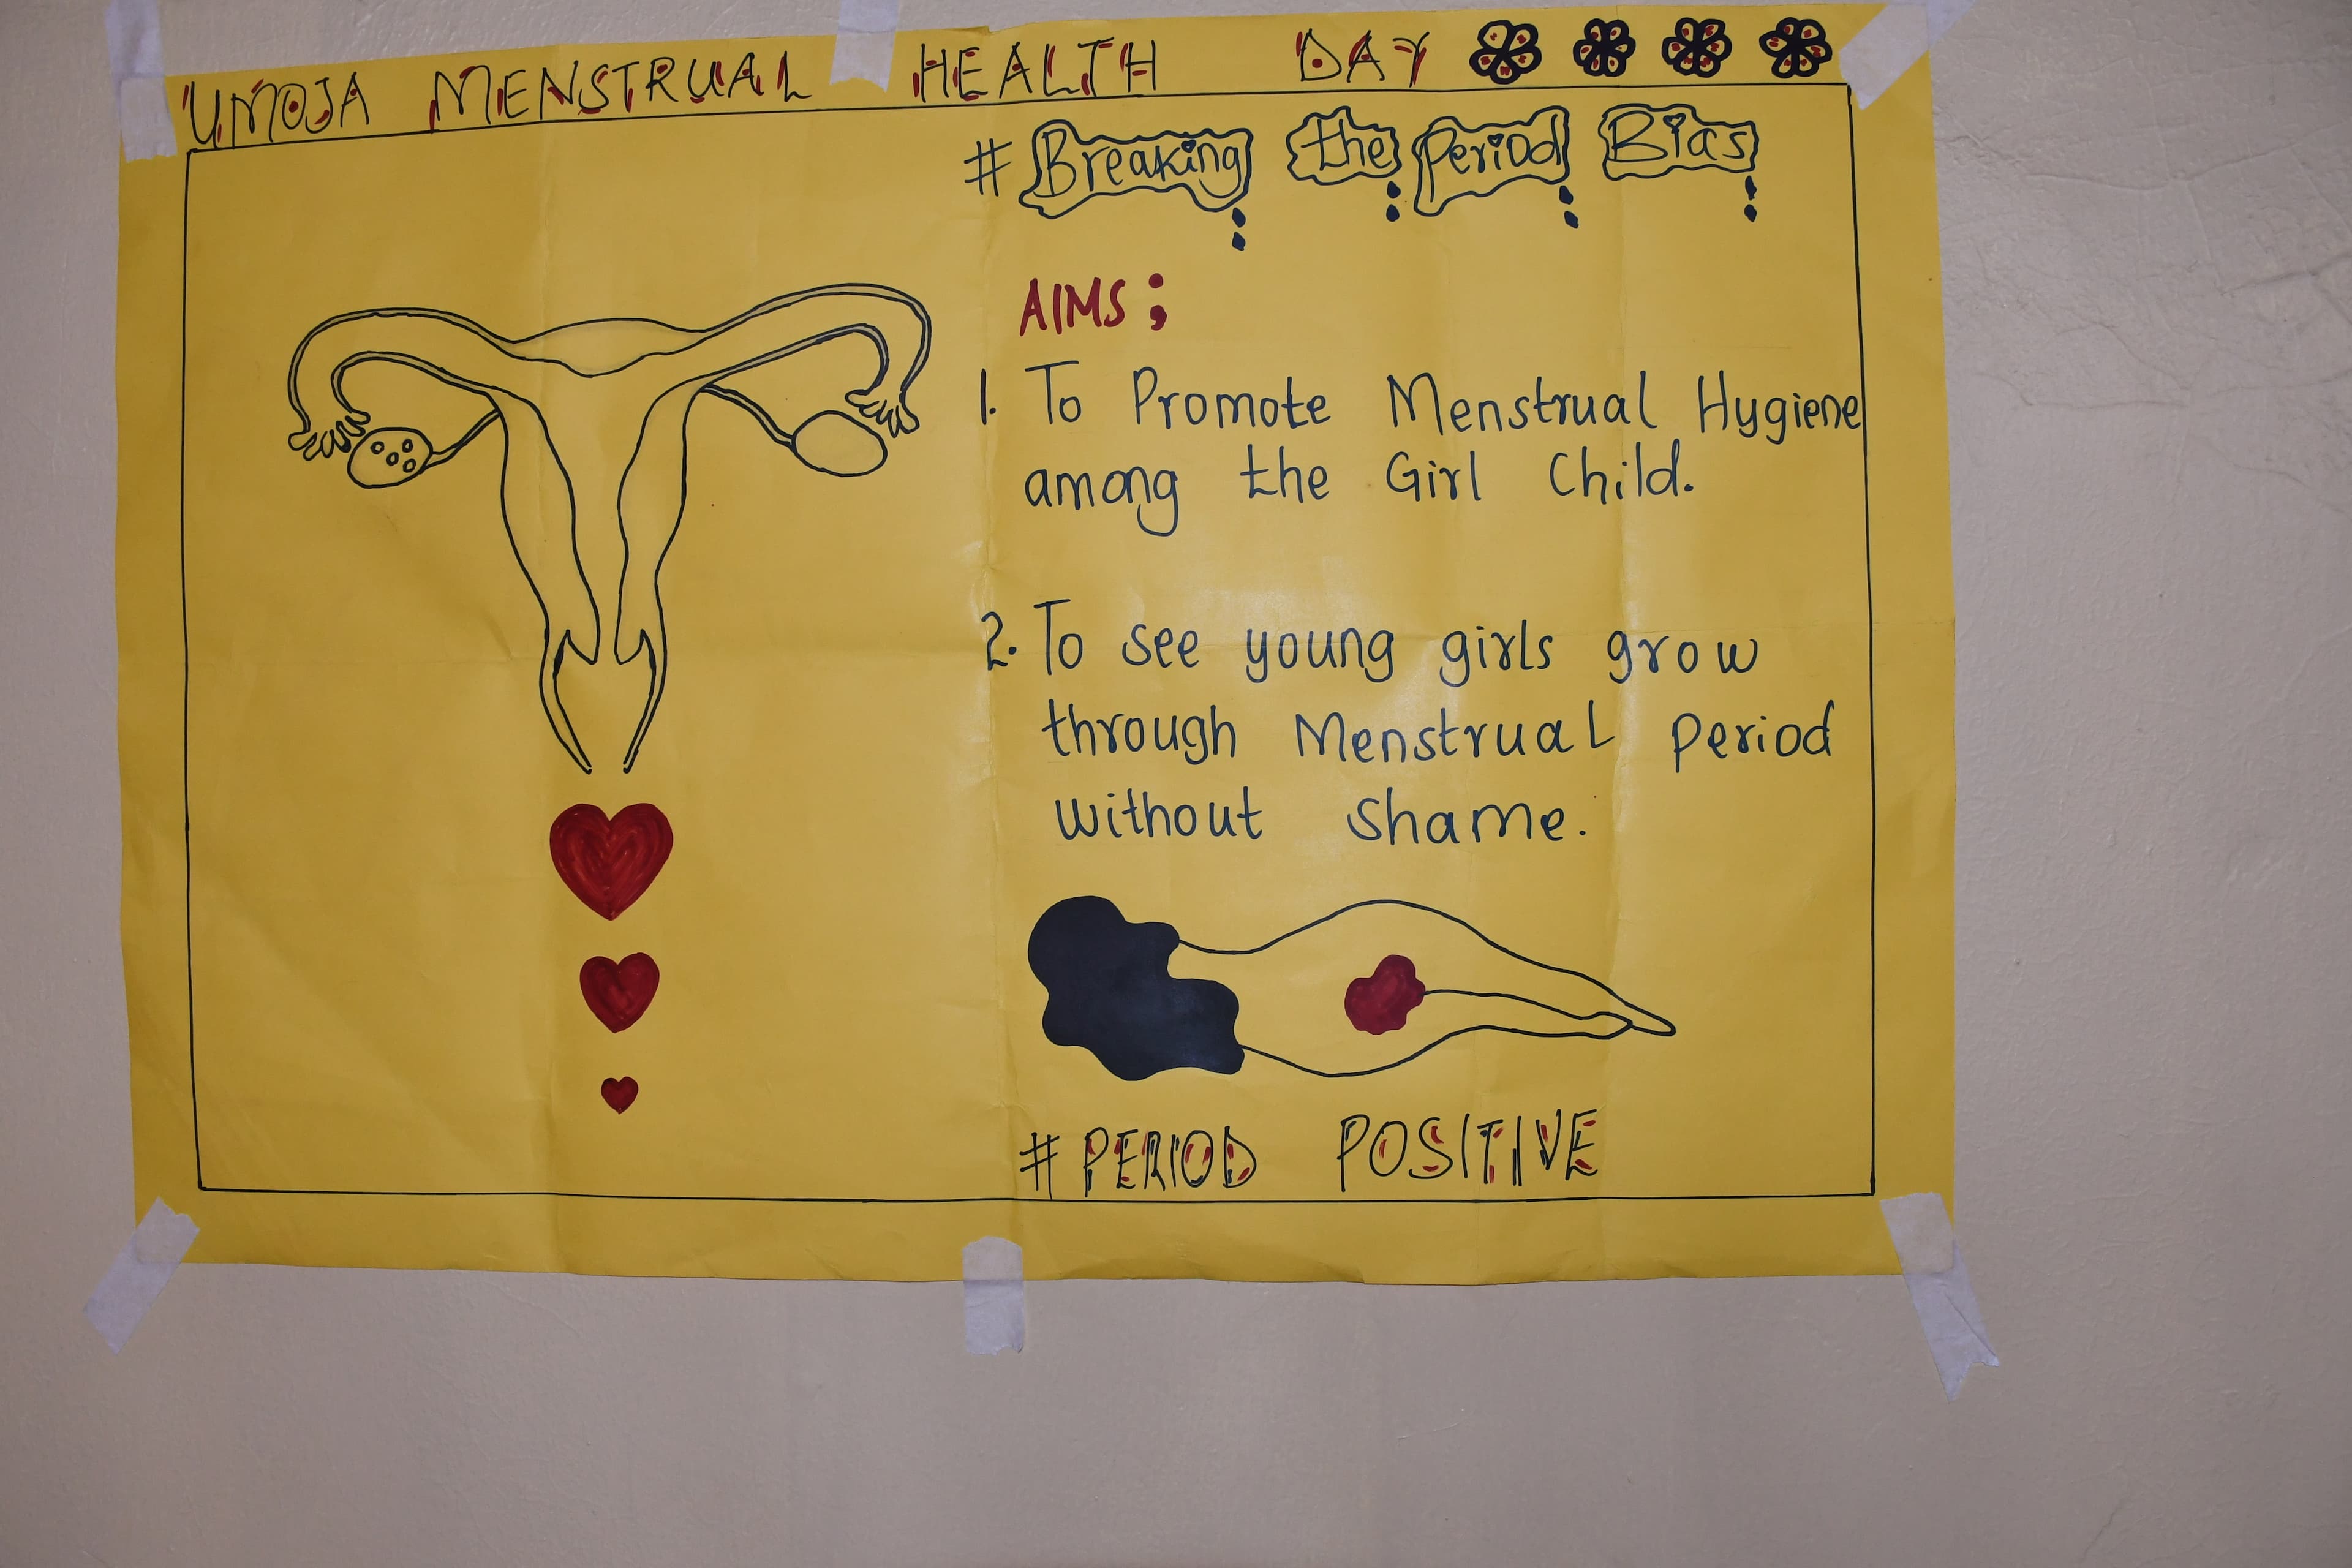 UMOJA MENSTRUAL HEALTH DAY
# Breaking the Period Bias
AIMS ;
1. To Promote Menstrual Hygiene
among the Girl Child.
2. To see young girls grow
through Menstrual Period
without shame.
# PERIOD POSITIVE